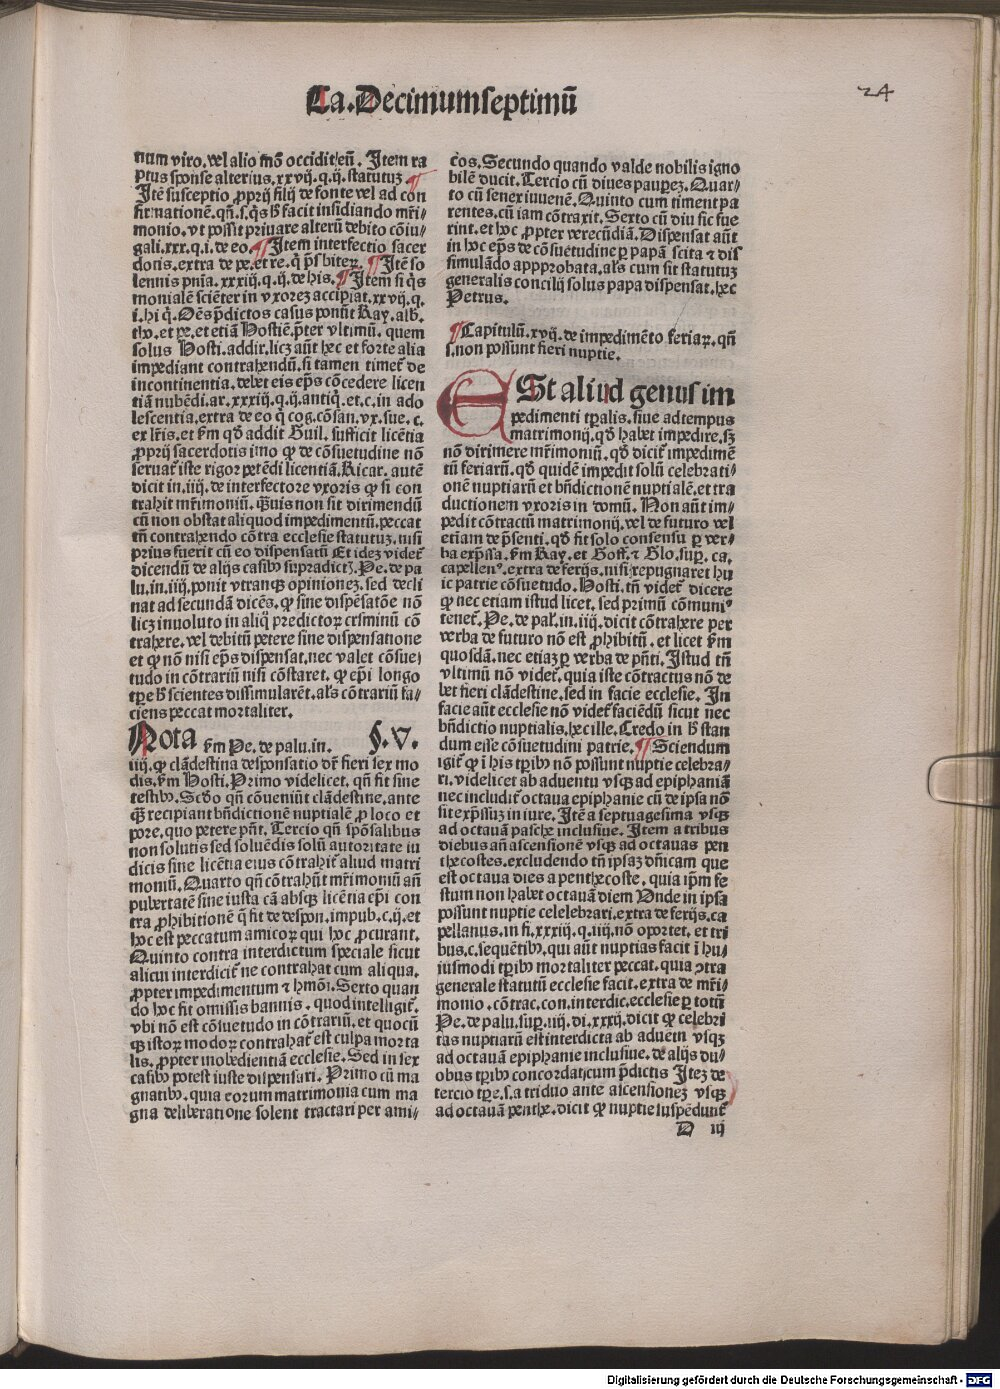 Ca.Decimumseptimū
24
num viro.vel alio mō occidit eū. Item ra
ptus sponse alterius.xxvij.q.ij.statutuʒ ¶
Itē susceptio ꝓprij filij de fonte vel ad con
firmationē.qñ.s.q̇s hͦ facit insidiando mr̄i⸗
monio.vt possit priuare alterū debito cōiu⸗
gali.xxx.q.i.de eo.¶Item interfectio sacer
dotis.extra de pe.et re.q̇ p̄sbiter.¶Itē so
lennis pnīa.xxxiij.q.ij.de his.¶Item si q̇s
monialē sciēter in vxorez accipiat.xxvij.q.
i.hi q̇.Oēs p̄dictos casus ponūt Ray.alb.
tho.et pe.et etiā Hostiē.p̄ter vltimū. quem
solus Hosti.addit.licz aūt hec et forte alia
impediant contrahendū.si tamen timet̄ de
incontinentia.debet eis ep̄s cōcedere licen
tiā nubēdi.ar.xxxiij.q.ij.antiq̇.et.c.in ado
lescentia.extra de eo q̇ cog.cōsan.vx.sue.c.
ex lr̄is.et ẜm qd̄ addit Guil.sufficit licētia
ꝓprij sacerdotis imo ꝙ de cōsuetudine nō
seruat̄ iste rigor petēdi licentiā.Ricar.autē
dicit in.iiij.de interfectore vxoris ꝙ si con
trahit mr̄imoniū. Quis non sit dirimendū
cū non obstat aliquod impedimentū.peccat
tn̄ contrahendo cōtra ecclesie statutuʒ.nisi
prius fuerit cū eo dispensatū Et idez videt̄
dicendū de alijs casibꝰ supradictꝭ.Pe.de pa
lu.in.iiij.ponit vtranqʒ opinionez.sed decli
nat ad secundā dicēs.ꝙ sine dispēsatōe nō
licʒ inuoluto in aliq̇ predictoꝝ crsminū cō
trahere.vel debitū petere sine dispensatione
et ꝙ nō nisi ep̄s dispensat.nec valet cōsue⸗
tudo in cōtrariū nisi cōstaret.ꝙ ep̄i longo
tp̄e hͦ scientes dissimularēt.als cōtrariū fa⸗
ciens peccat mortaliter.
Nota ẜm Pe.de palu.in. §.V.
iiij.ꝙ clādestina desponsatio dr̄ fieri sex mo
dis.ẜm Hosti.Primo videlicet.qñ fit sine
testibꝰ.Scd̄o qñ cōueniūt clādestine.ante
qʒ recipiant bn̄dictionē nuptialē ꝓ loco et
pore.quo petere pn̄t.Tercio qñ spōsalibus
non solutis sed soluēdis solū autoritate iu
dicis sine licētia eius cōtrahit̄ aliud matri
moniū.Quarto qñ cōtrahūt mr̄imoniū añ
pubertatē sine iusta cā absqʒ licētia ep̄i con
tra ꝓhibitionē q̄ fit de despon.impub.c.ij.et
hoc est peccatum amicoꝝ qui hoc ꝓcurant.
Quinto contra interdictum speciale sicut
alicui interdicit̄ ne contrahat cum aliqua.
ꝓpter impedimentum ⁊ hmōi.Sexto quan
do hoc fit omissis bannis.quod intelligit̄.
vbi nō est cōsuetudo in cōtrariū.et quocū
qʒ istoꝝ modoꝝ contrahat̄ est culpa morta
lis.ꝓpter inobedientiā ecclesie.Sed in sex
casibꝰ potest iuste dispensari.Primo cū ma
gnatibꝰ.quia eorum matrimonia cum ma
gna deliberatione solent tractari per ami⸗
cos.Secundo quando valde nobilis igno
bilē ducit.Tercio cū diues pauꝑez.Quar⸗
to cū senex iuuenē.Quinto cum timent pa
rentes.cū iam cōtraxit.Sexto cū diu sic fue
rint.et hoc ꝓpter verecūdiā.Dispensat aūt
in hoc ep̄s de cōsuetudine ꝑ papā scita ⁊ dis
simulādo appprobata.als cum sit statutuʒ
generalis concilij solus papa dispensat.hec
Petrus.
¶Capitulū.xvij.de impedimēto feriaꝝ.qñ
s.non possunt fieri nuptie.
ESt aliud genus im
pedimenti tp̄alis.siue ad tempus
matrimonij.qd̄ habet impedire.sʒ
nō dirimere mr̄imoniū.qd̄ dicit̄ impedimē
tū feriarū.qd̄ quidē impedit solū celebrati⸗
onē nuptiarū et bn̄dictionē nuptialē.et tra
ductionem vxoris in domū. Non aūt im⸗
pedit cōtractū matrimonij.vel de futuro vel
etiam de p̄senti.qd̄ fit solo consensu ꝑ ver⸗
ba exp̄ssa.ẜm Ray.et Goff.⁊ Glo.suꝑ.ca.
capellenꝰ.extra de ferijs.nisi repugnaret hu
ic patrie cōsuetudo.Hosti.tn̄ videt̄ dicere
ꝙ nec etiam istud licet.sed primū cōmuniꝰ
tenet̄.Pe.de pal̄.in.iiij.dicit cōtrahere per
verba de futuro nō est ꝓhibitū.et licet ẜm
quosdā.nec etiaʒ ꝑ verba de pn̄ti.Istud tn̄
vltimū nō videt̄.quia iste cōtractus nō de
bet fieri clādestine.sed in facie ecclesie. In
facie aūt ecclesie nō videt̄ faciēdū sicut nec
bn̄dictio nuptialis.hec ille.Credo in hͦ stan
dum esse cōsuetudini patrie.¶Sciendum
igit̄ ꝙ ī his tp̄ibꝰ nō possunt nuptie celebra⸗
ri.videlicet ab aduentu vsqʒ ad epiphaniā
nec includit̄ octaua epiphanie cū de ipsa nō
sit exp̄ssuʒ in iure.Itē a septuagesima vsqʒ
ad octauā pasche inclusiue. Item a tribus
diebus añ ascensionē vsqʒ ad octauas pen
thecostes.excludendo tn̄ ipsaʒ dn̄icam que
est octaua dies a penthecoste.quia ip̄m fe
stum non habet octauā diem Unde in ipsa
possunt nuptie celelebrari.extra de ferijs.ca
pellanus.in fi.xxxiij.q.iiij.nō oportet.et tri
bus.c.sequētibꝰ.qui aūt nuptias facit ī hu⸗
iusmodi tp̄ibꝰ mortaliter peccat.quia ↄtra
generale statutū ecclesie facit.extra de mr̄i⸗
monio.cōtrac.con.interdic.ecclesie ꝑ totū
Pe.de palu.suꝑ.iiij.di.xxxij.dicit ꝙ celebri
tas nuptiarū est interdicta ab aduētu vsqʒ
ad octauā epiphanie inclusiue.de alijs du⸗
obus tp̄ibꝰ concordat cum p̄dictis Iteʒ de
tercio tp̄e.s.a triduo ante ascensioneʒ vsqʒ
ad octauā penthe.dicit ꝙ nuptie suspēdunt̄
D iij
Digitalisierung gefördert durch die Deutsche Forschungsgemeinschaft - DFG